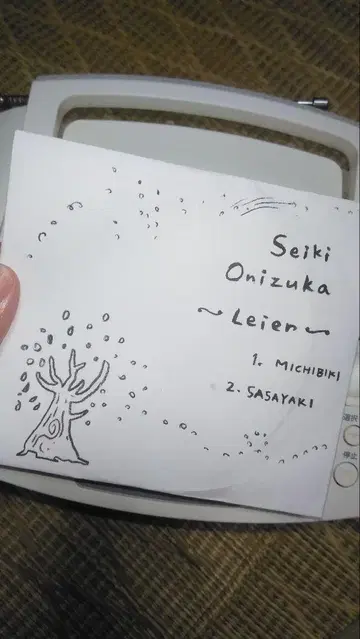 Seiki
Onizuka
~Leier~
1. MICHIBIKI
2. SASAYAKI
選択
停止